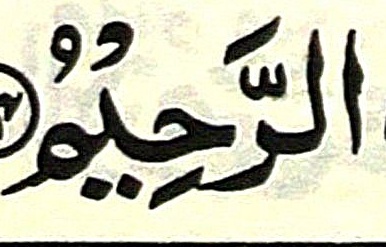 الرَّحِيْمُ